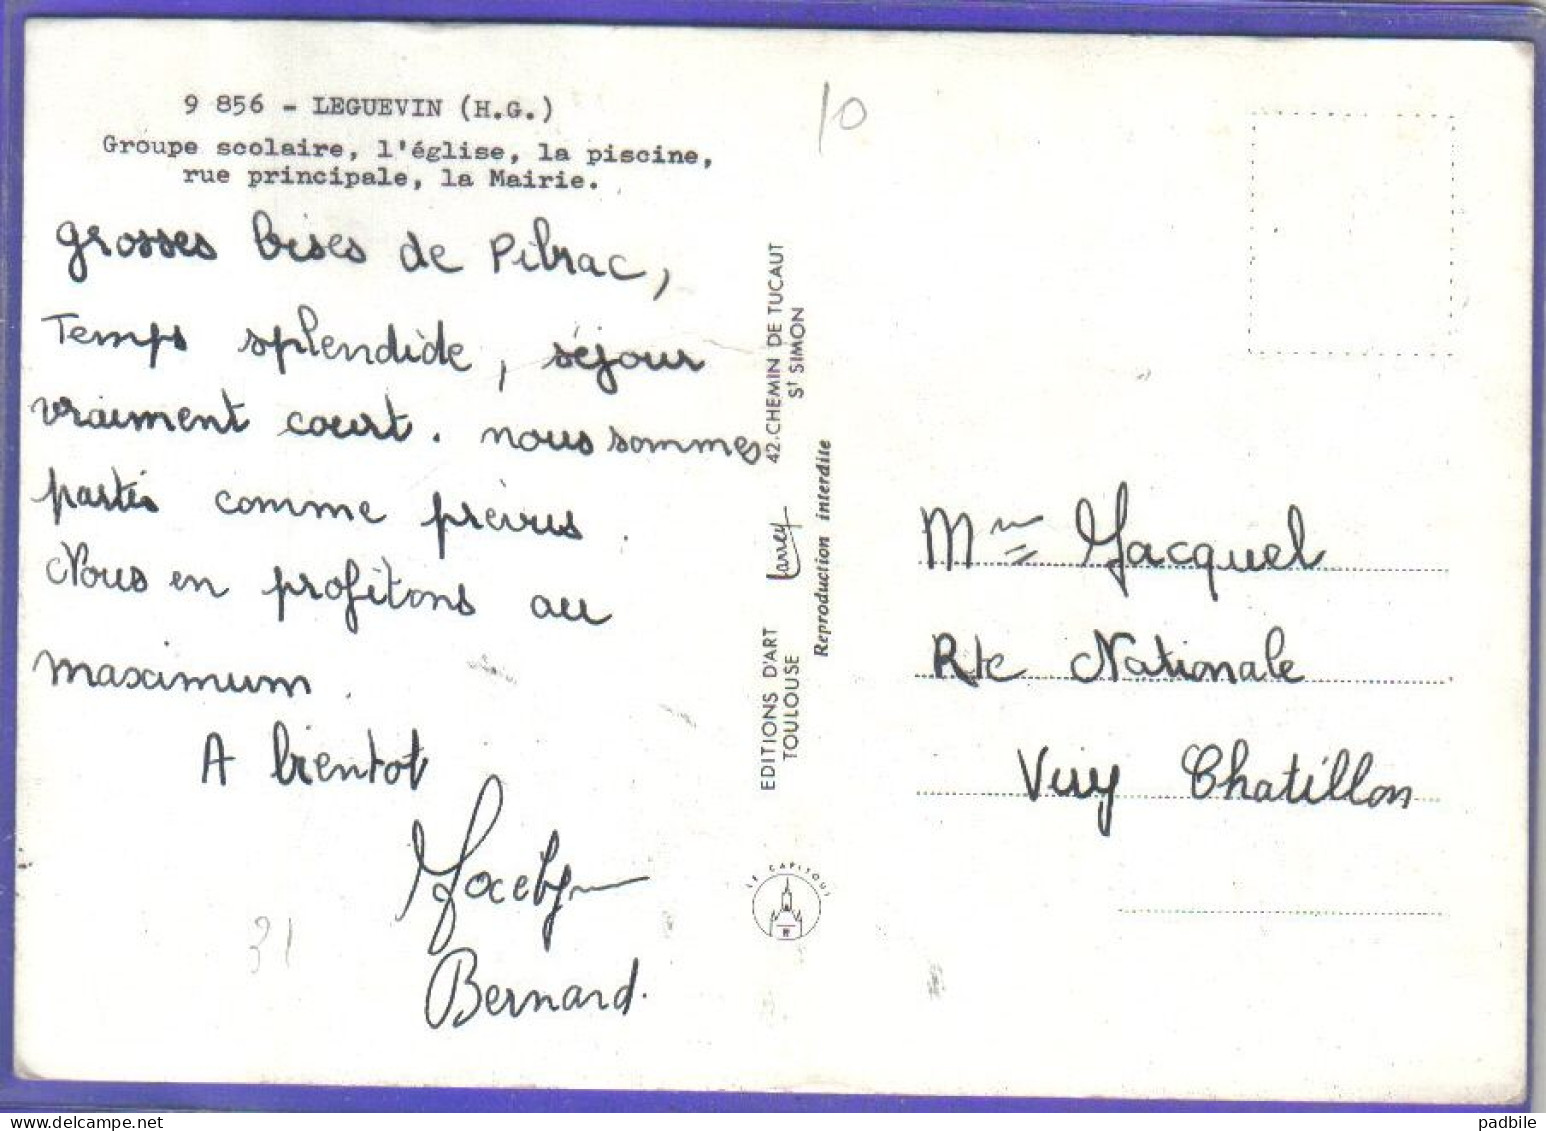 9 856 - LEGUEVIN (H.G.)
Groupe scolaire, l'église, la piscine,
rue principale, la Mairie.
grosses bises de Pibrac,
Temps splendide, séjour
vraiment court. nous sommes
partis comme prévus.
Nous en profitons au
maximum.
A bientot
Jocelyn
Bernard.
31
10
EDITIONS D'ART Larrey 42. CHEMIN DE TUCAUT
TOULOUSE St SIMON
Reproduction interdite
LE CAPITOUL
Mme Jacquel
Rte Nationale
Viry Chatillon
padbile